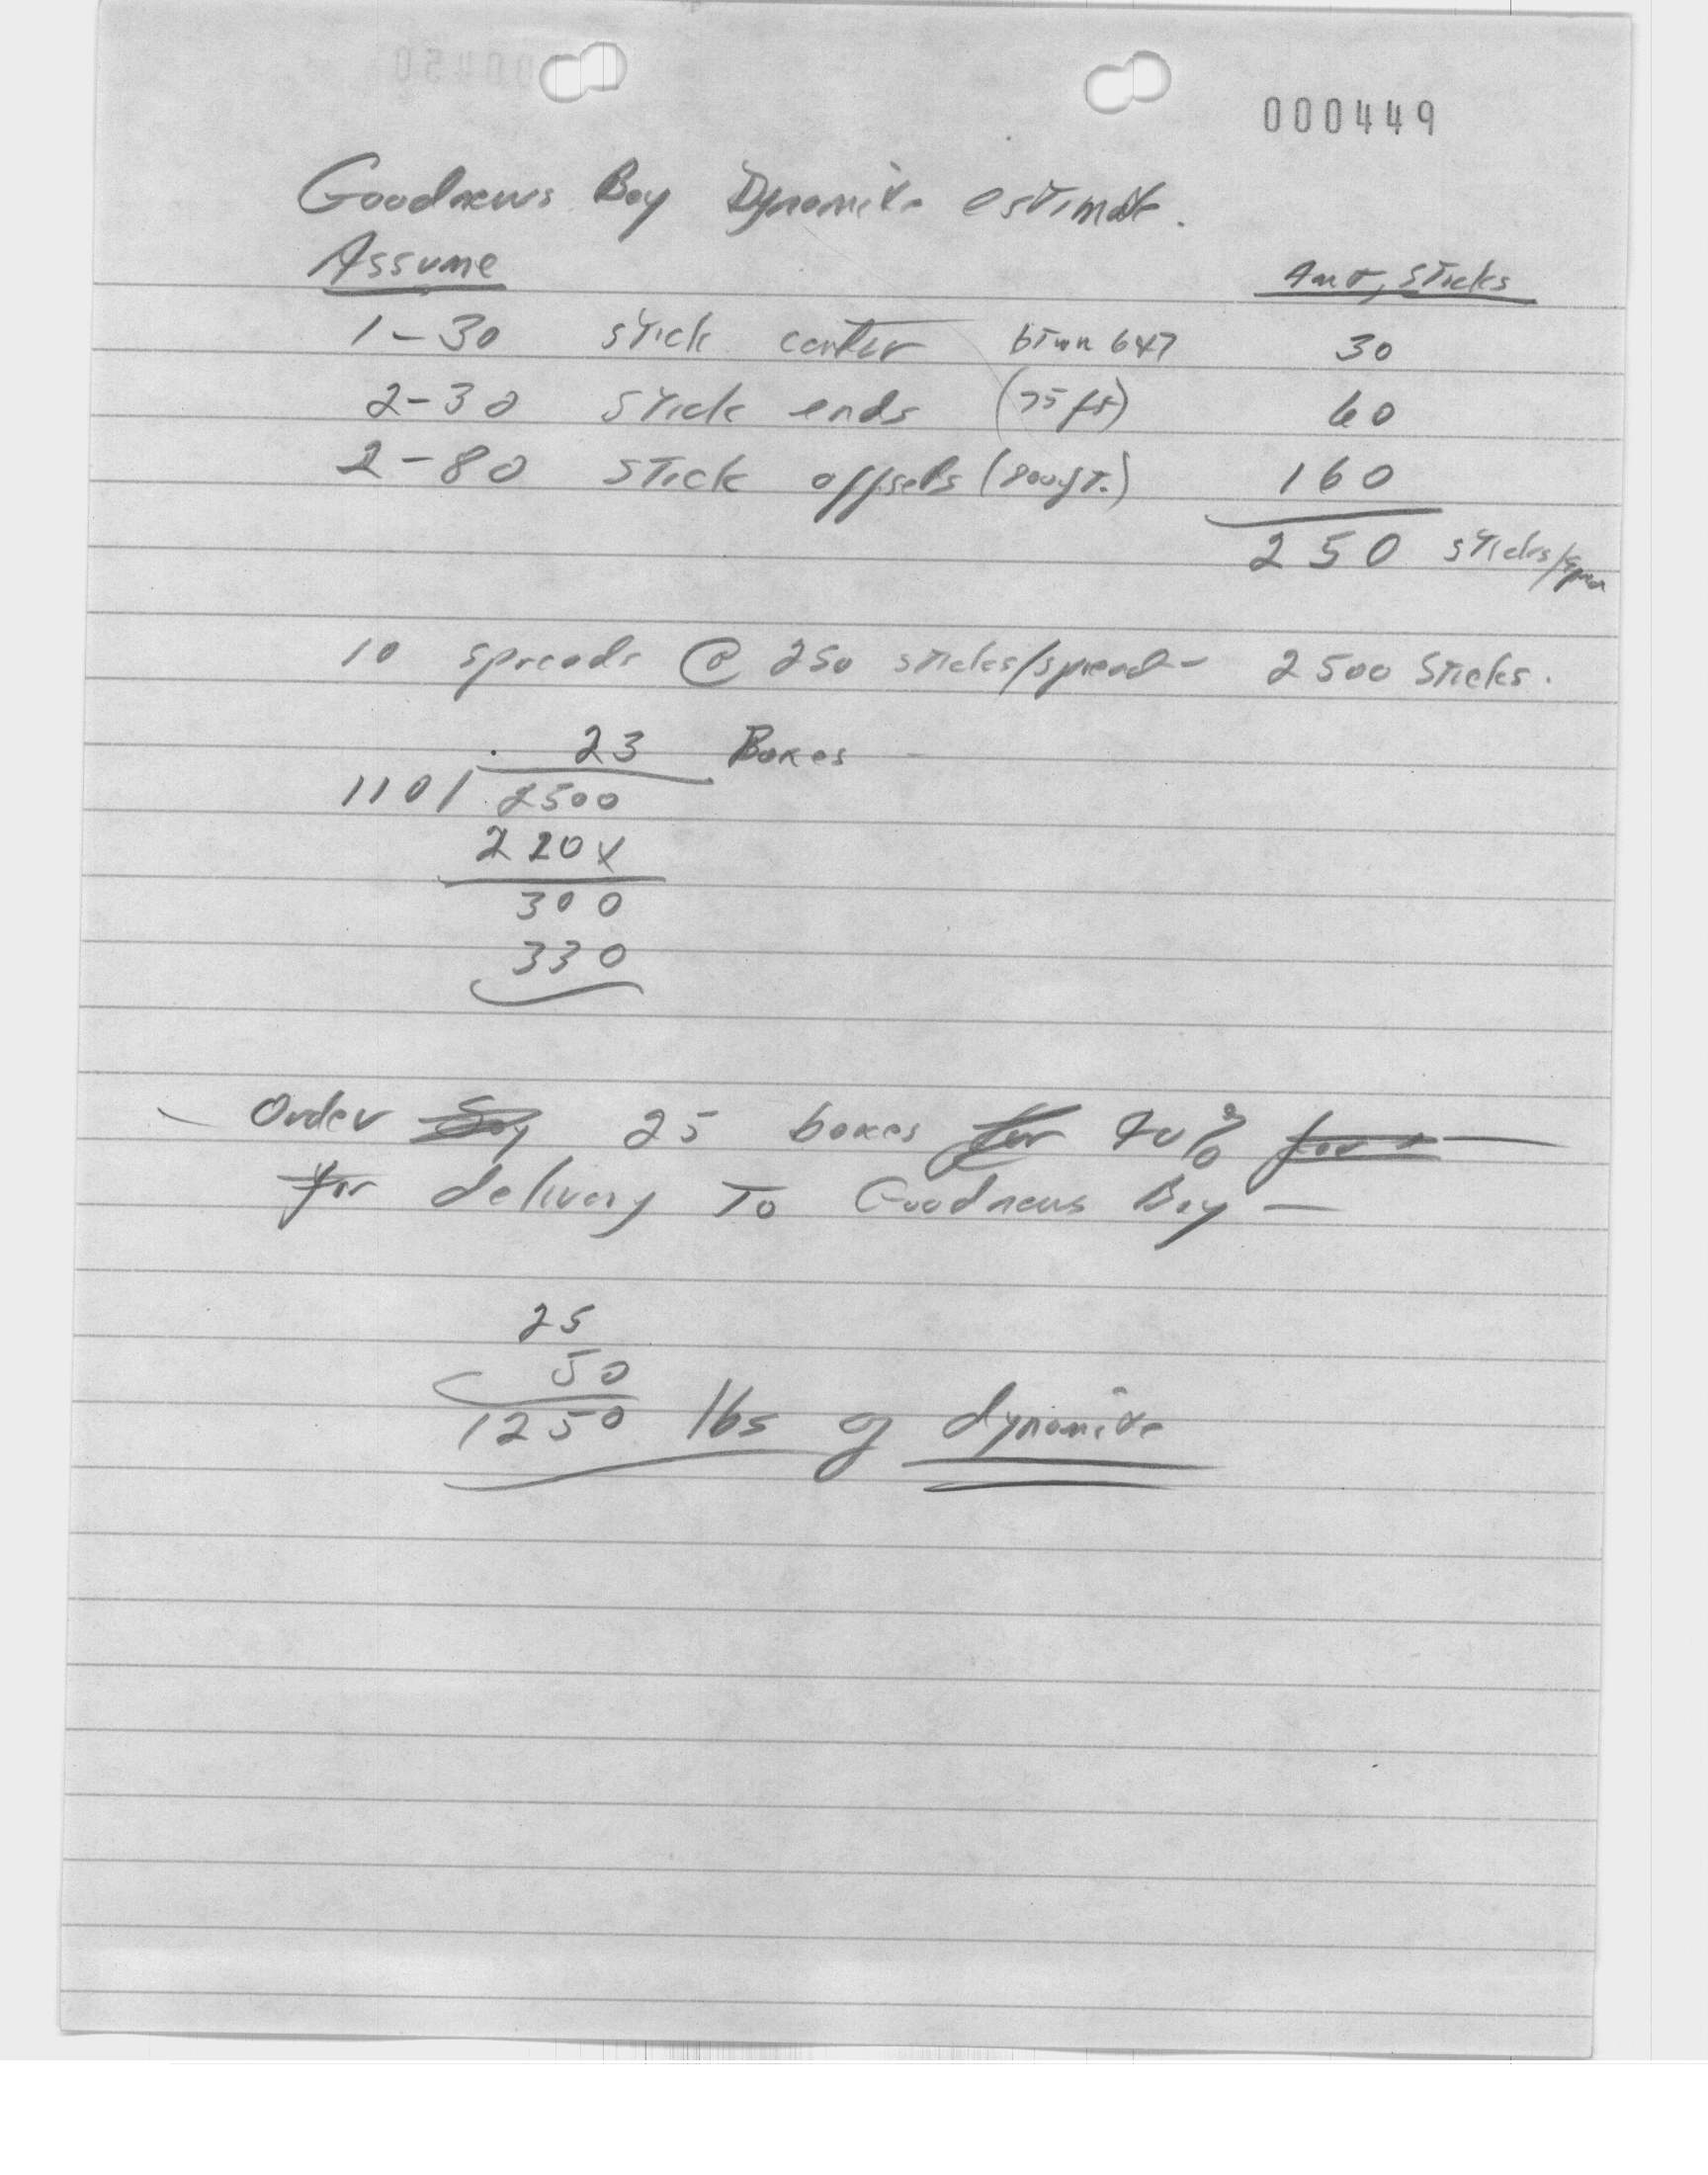 000449
Goodnews Bay Dynamite estimate.
Assume Amt, Sticks
1-30 stick center btwn 6&7 30
2-30 stick ends (75 ft) 60
2-80 stick offsets (800ft.) 160
250 sticks/spread
10 spreads @ 250 sticks/spread- 2500 Sticks.
23 Boxes
110/2500
220x
300
330
Order 25 boxes 40%
for delivery To Goodnews Bay —
25
50
1250 lbs of dynamite